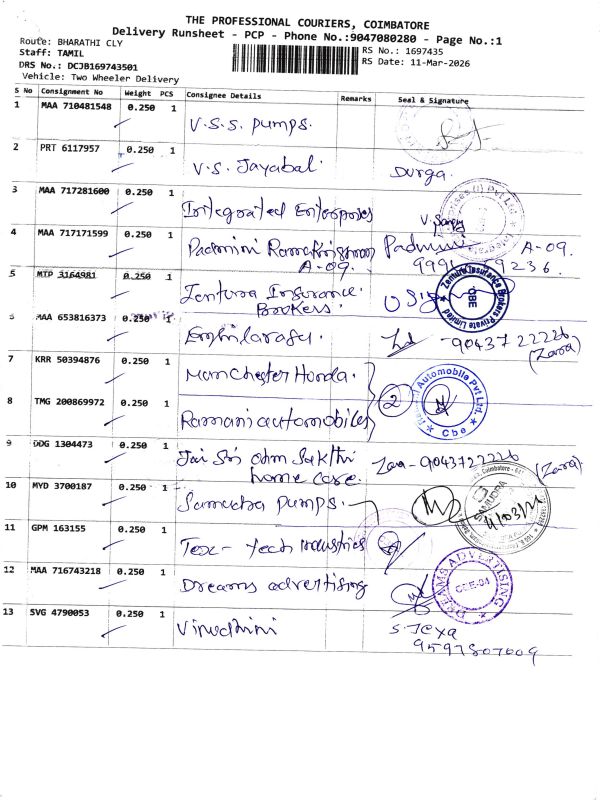 THE PROFESSIONAL COURIERS, COIMBATORE
Delivery Runsheet - PCP - Phone No.:9047080280 - Page No.:1
Route: BHARATHI CLY
RS No.: 1697435
Staff: TAMIL
RS Date: 11-Mar-2026
DRS No.: DCJB169743501
Vehicle: Two Wheeler Delivery
S No Consignment No Weight PCS Consignee Details Remarks Seal & Signature
1 MAA 710481548 0.250 1 V.S.S. Pumps.
2 PRT 6117957 0.250 1 V.S. Jayabal. Durga.
3 MAA 717281600 0.250 1 Integrated Enterprises
4 MAA 717171599 0.250 1 Padmini Padmini A-09.
A-09. 9236.
5 MTP 3164981 0.250 1 Insurance.
Brokers.
Zennura Insurance Brokers Private Limited
CBE
6 MAA 653816373 0.250 1 - 9043722226
(Zara)
7 KRR 50394876 0.250 1 Manchester Honda.
2
Automobile Pvt Ltd.
Cbe
8 TMG 200869972 0.250 1 Ramani automobiles
9 DDG 1304473 0.250 1 Jai Sri ohm Sakthi - 9043722226 (Zara)
home care.
10 MYD 3700187 0.250 1 Samudra Pumps.
SAMUDRA
Coimbatore
11 GPM 163155 0.250 1 Tex-tech industries
12 MAA 716743218 0.250 1 Dreams advertising
DREAMS ADVERTISING
CBE-04
13 SVG 4790053 0.250 1 Vinudhini S. Jeya
9597807609